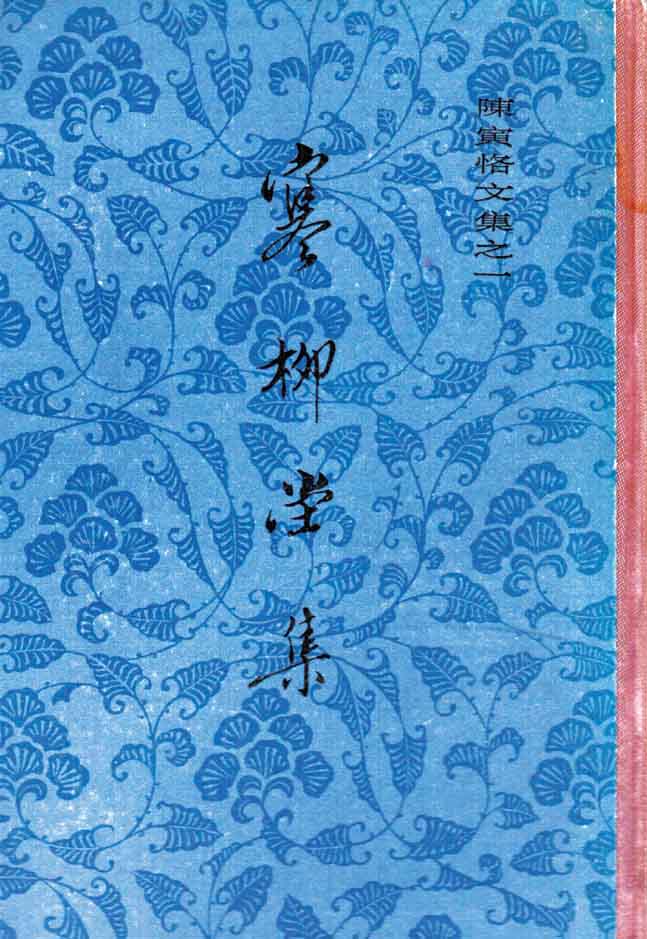 陳寅恪文集之一
寒柳堂集